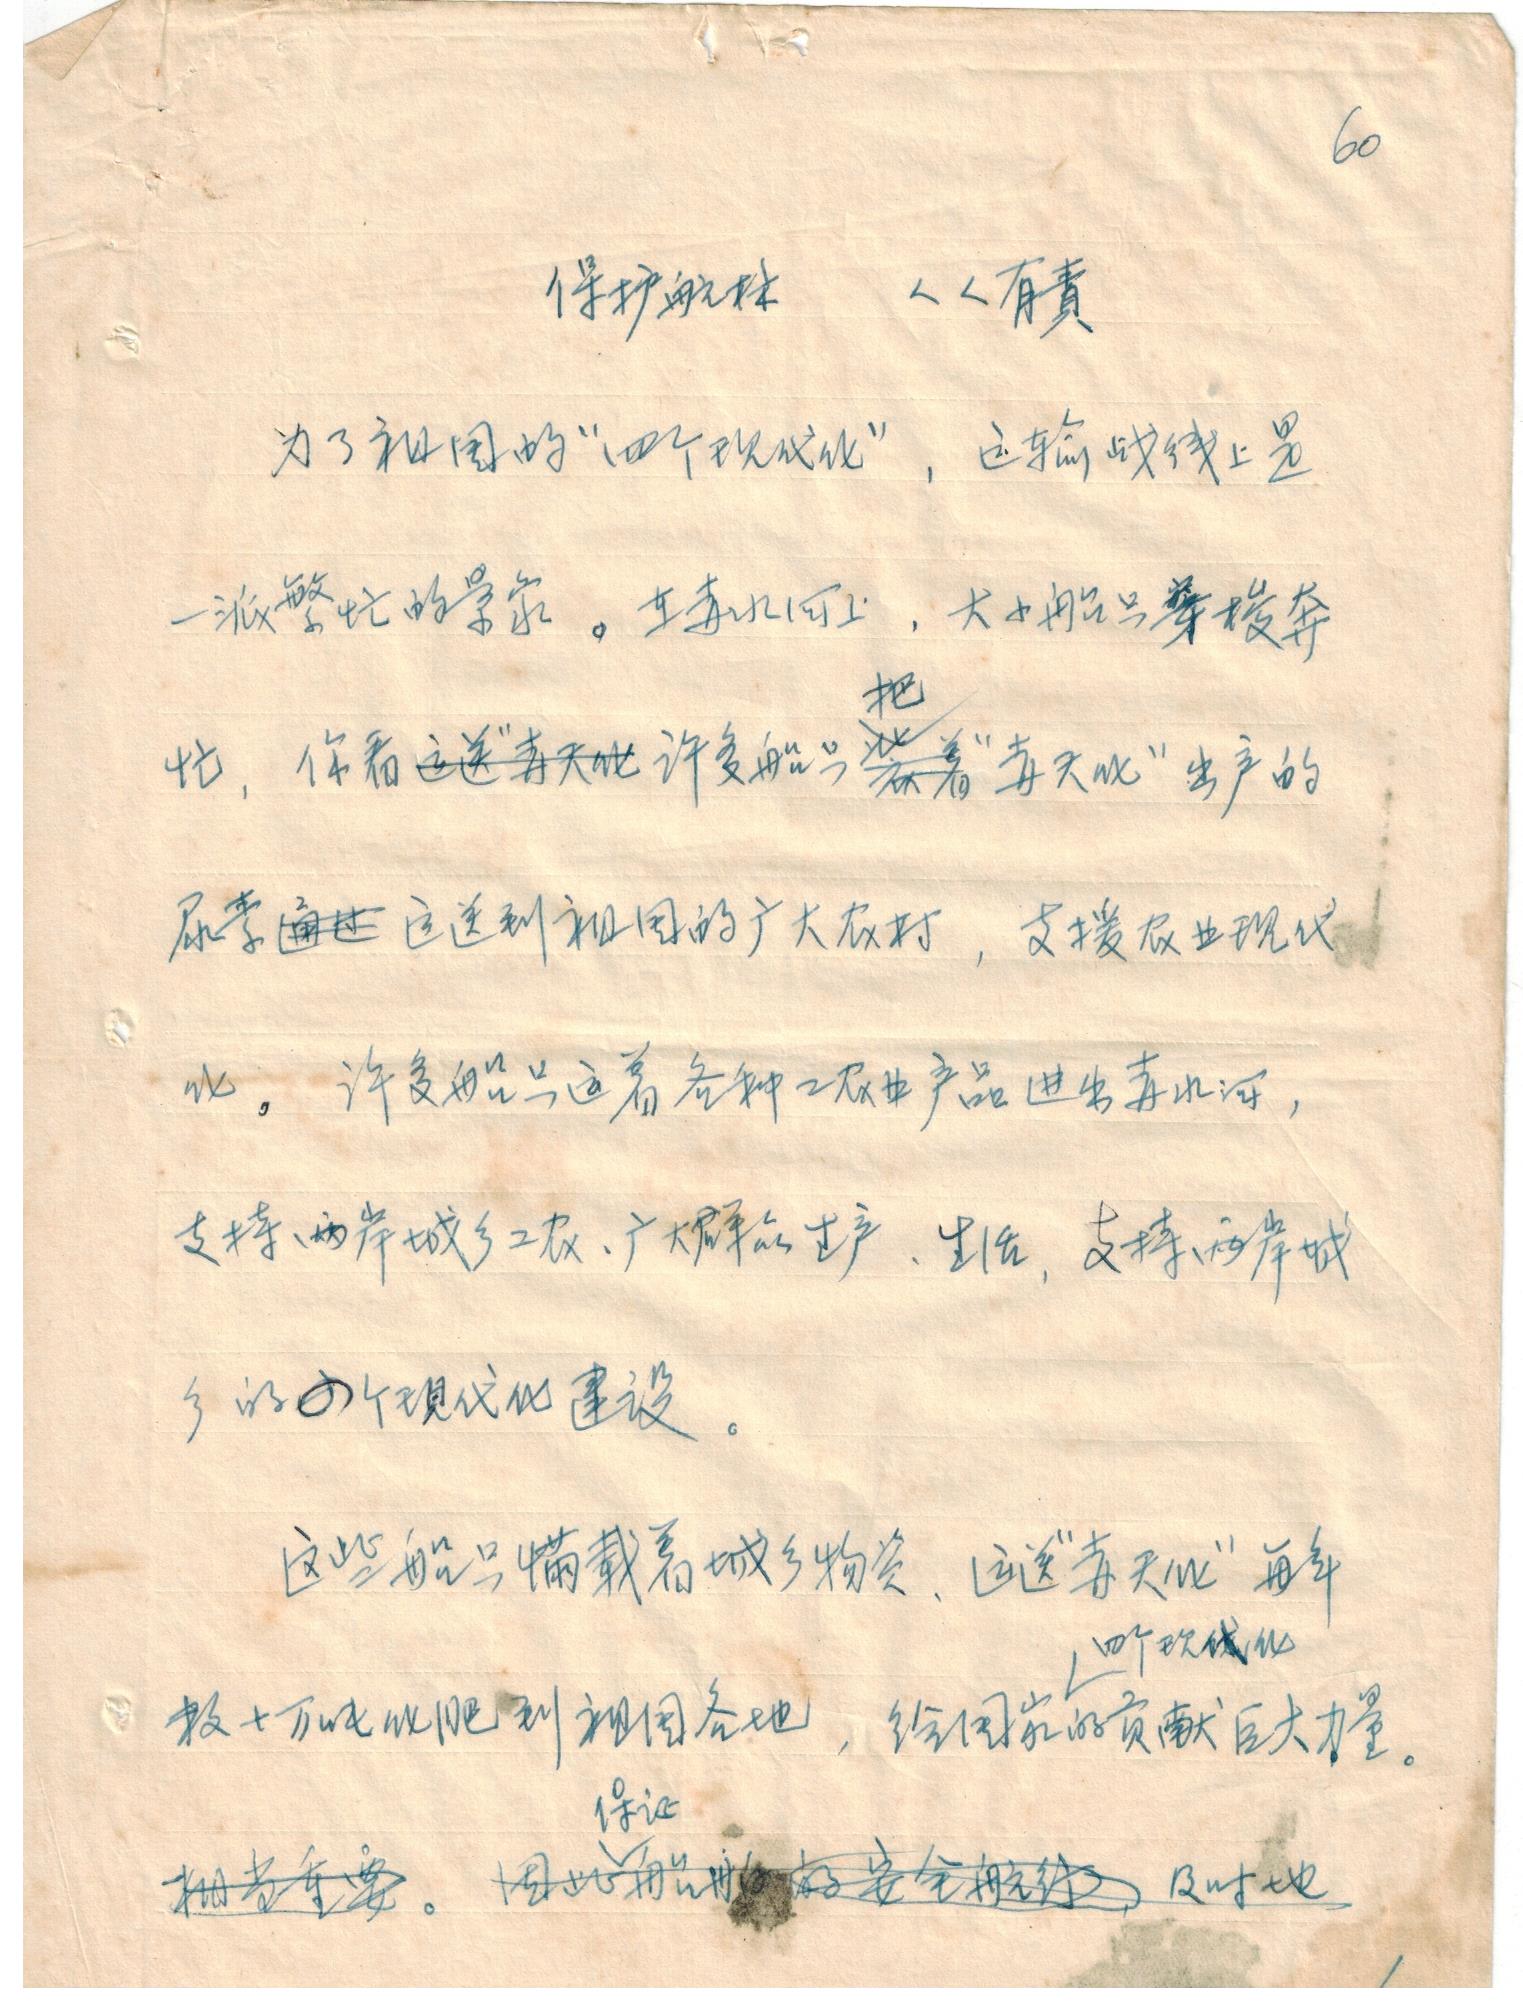 60
保护航标 人人有責
为了祖国的"四个现代化"，运输战线上是
一派繁忙的景象。在赤水河上，大小船只穿梭奔
把
忙，你看运送"赤天化许多船只装着"赤天化"出产的
尿素通过运送到祖国的广大农村，支援农业现代
化。许多船只运着各种工农业产品进出赤水河，
支持两岸城乡工农、广大群众生产、生活，支持两岸城
乡的四个现代化建设。
这些船只满载着城乡物资、运送"赤天化"每年
四个现代化
数十万吨化肥到祖国各地，给国家的贡献巨大力量。
保证
相当重要。因此船舶的安全航行，及时地